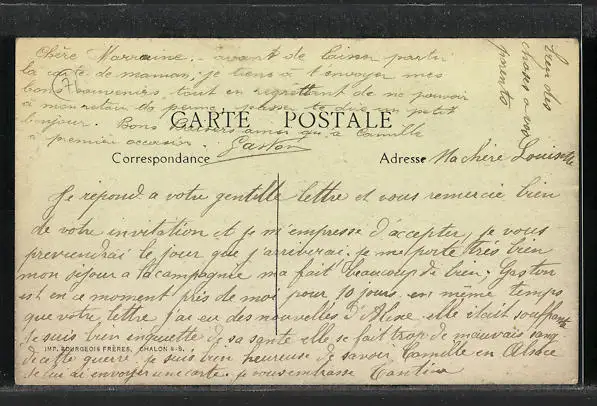 Chère Marraine. - avant de laisser partir
la carte de maman, je tiens à t'envoyer mes
bons souvenirs tout en regrettant de ne pouvoir
à mon retour de perme, passer te dire un petit
bonjour. Bons baisers ainsi qu'à Camille
à première occasion. Gaston
bien des
choses a vos
parents
71
CARTE POSTALE
Correspondance
Adresse
Ma chère Louisette
Je répond a votre gentille lettre et vous remercie bien
de votre invitation et je m'empresse d'accepter, je vous
previendrai le jour que j'arriverai. je me porte très bien
mon séjour a la campagne ma fait beaucoup de bien; Gaston
est en ce moment près de moi pour 10 jours. en même temps
que votre lettre j'ai eu des nouvelles d' elle était souffrante
je suis bien inquiette de sa santé elle se fait trop de mauvais sang
de cette guerre. je suis bien heureuse de savoir Camille en Alsace
je lui ai envoyer une carte. je vous embrasse
IMP. BOURGEOIS FRÈRES, CHALON-S-S.